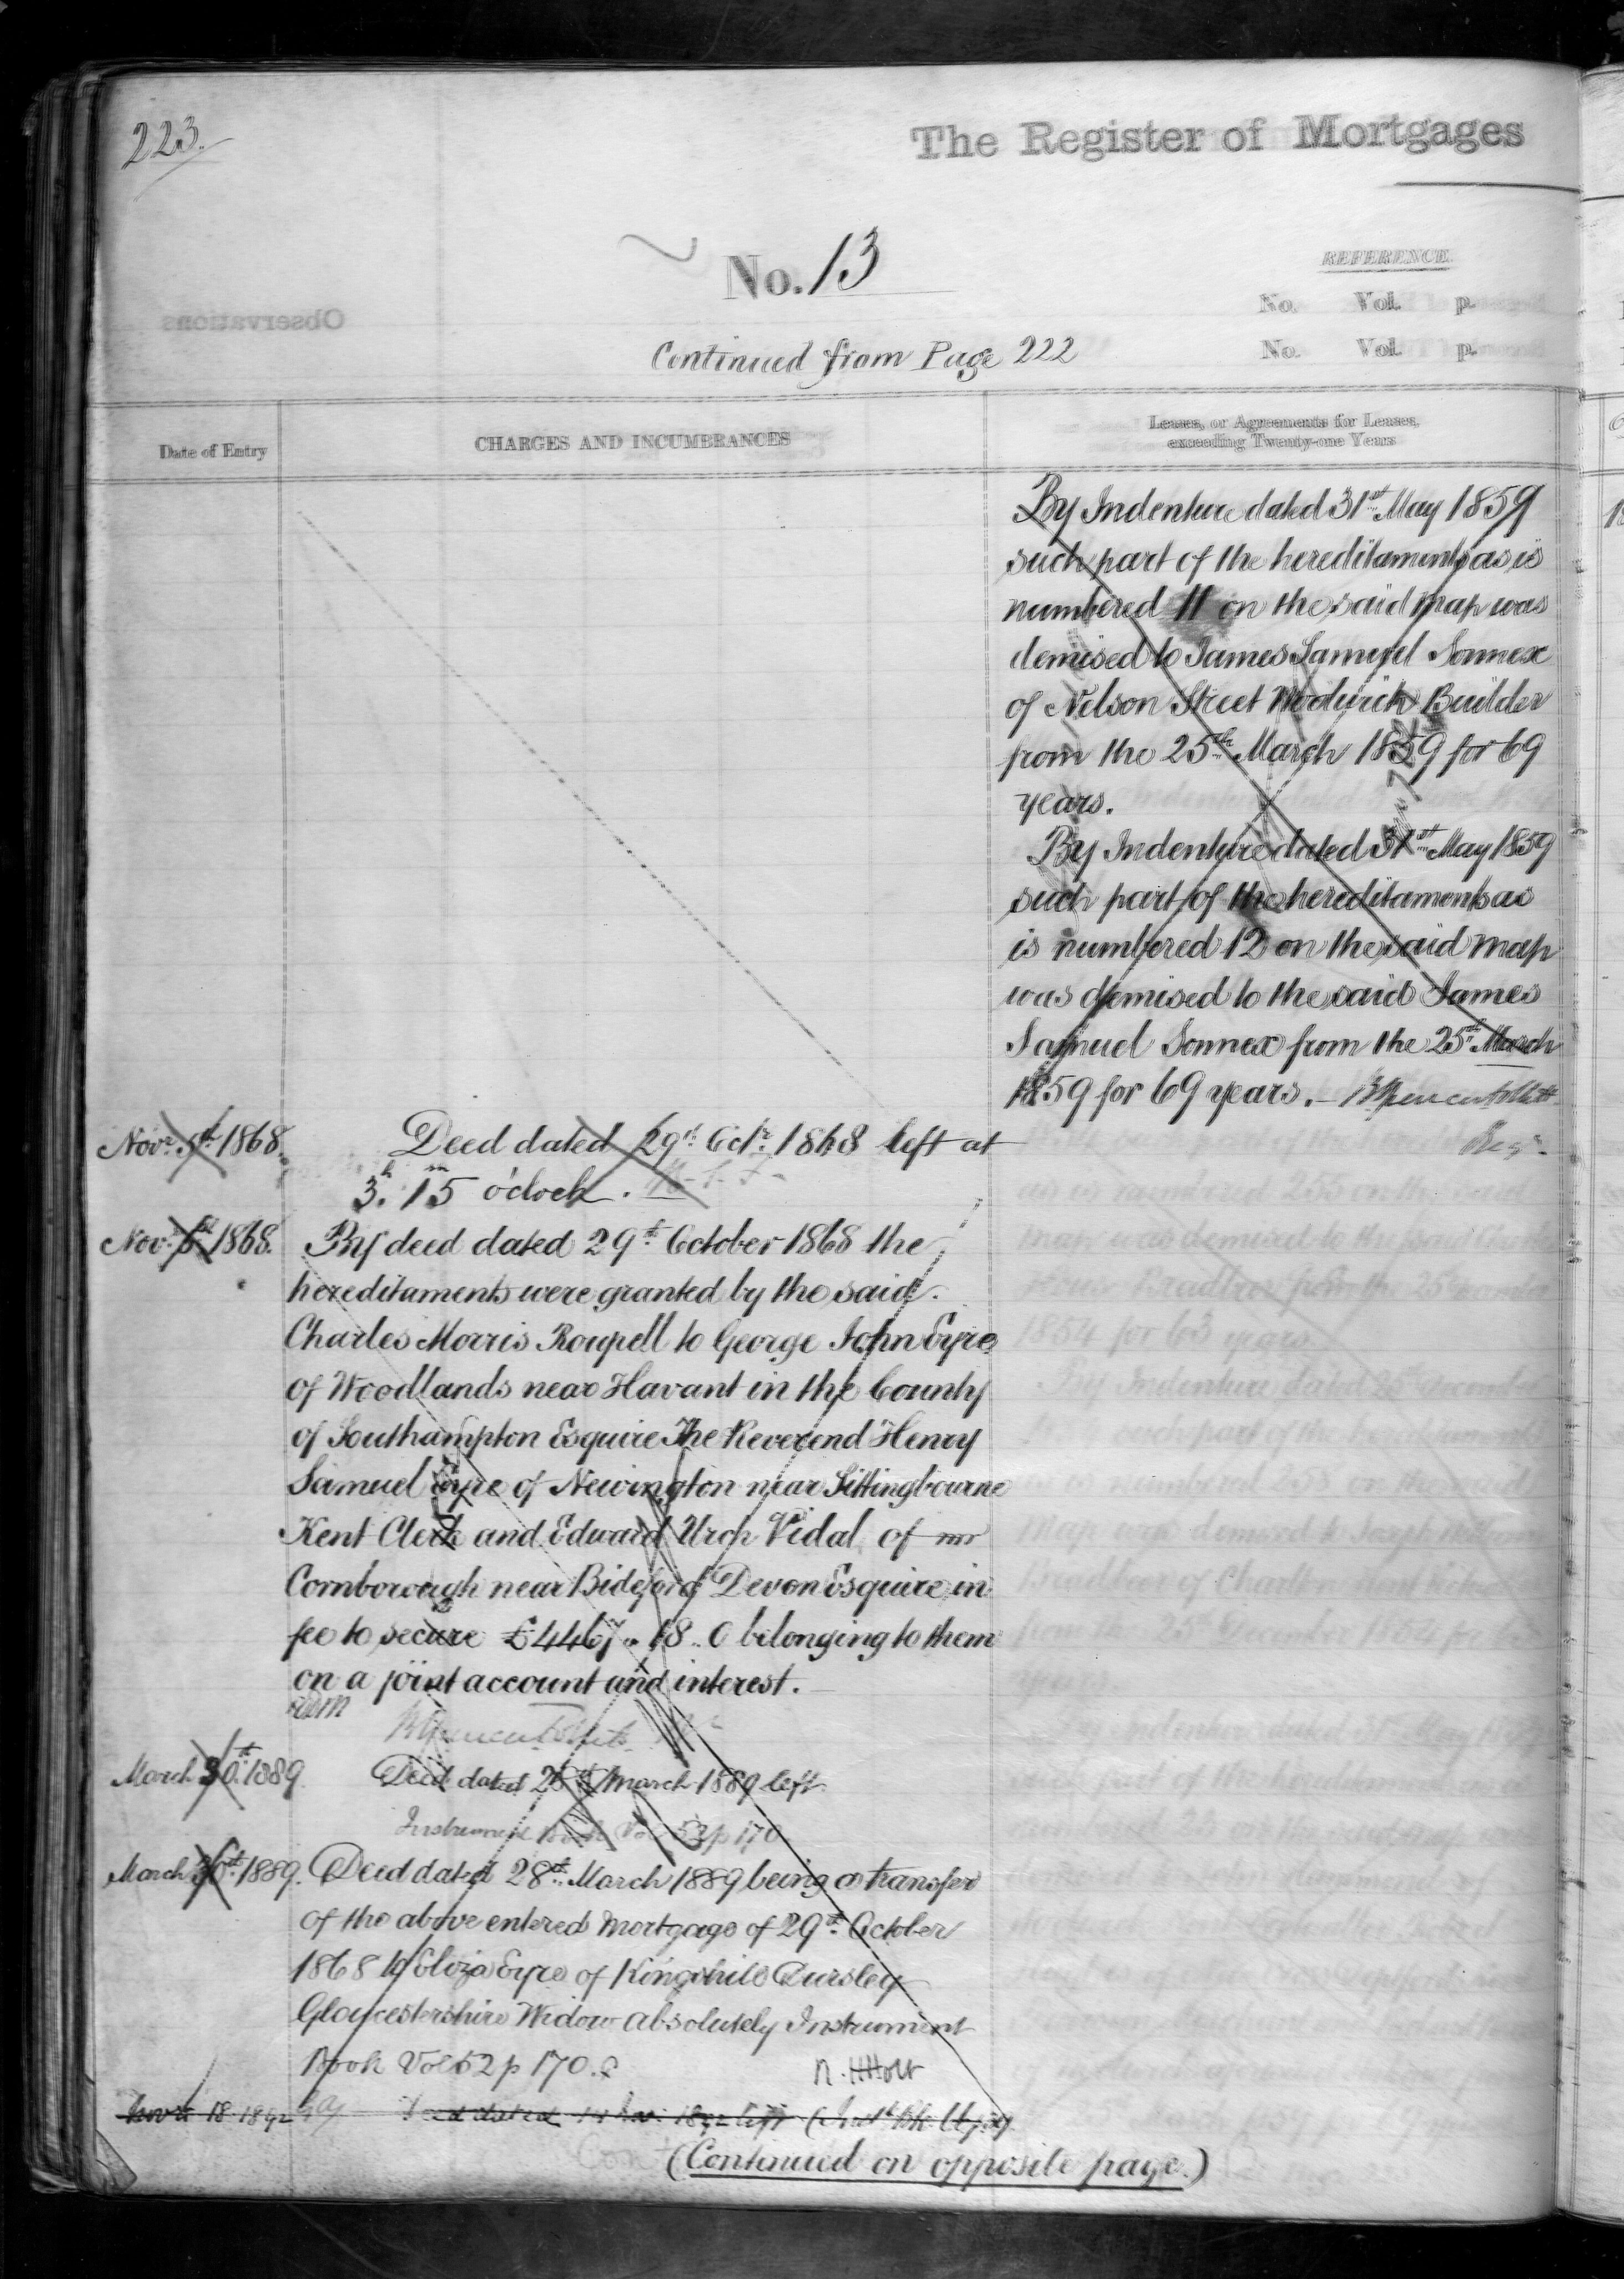 223.
The Register of Mortgages
No. 13
REFERENCE.
No. Vol. p.
No. Vol. p.
Observations
Continued from Page 222
Date of Entry
CHARGES AND INCUMBRANCES
Leases, or Agreements for Leases,
exceeding Twenty-one Years
By Indenture dated 31st May 1859
such part of the hereditaments as is
numbered 11 on the said map was
demised to James Samuel Sonnex
of Nelson Street Woolwich Builder
from the 25th March 1859 for 69
years.
By Indenture dated 31st May 1859
such part of the hereditaments as
is numbered 12 on the said map
was demised to the said James
Samuel Sonnex from the 25th March
1859 for 69 years.
Regr.
Novr. 5th 1868.
Deed dated 29th Octr. 1868 left at
3h. 15m o'clock.
Nov. 1868.
By deed dated 29th October 1868 the
hereditaments were granted by the said
Charles Morris Roupell to George John Eyre
of Woodlands near Havant in the County
of Southampton Esquire The Reverend Henry
Samuel Eyre of Newington near Sittingbourne
Kent Clerk and Edward Urch Vidal of
Cornborough near Bideford Devon Esquire in
fee to secure £4467 .. 18 .. 0 belonging to them
on a joint account and interest.
March 30th. 1889.
Deed dated 28th March 1889 left.
Instrument Book Vol 52 p 170
March 30th. 1889.
Deed dated 28th March 1889 being a transfer
of the above entered Mortgage of 29th October
1868 to Eliza Eyre of Kingshill Dursley
Gloucestershire Widow absolutely Instrument
Book Vol 52 p 170.
R. H Holt
Nov 18 1892
Deed dated 14 Nov. 1892 left
(Continued on opposite page.)